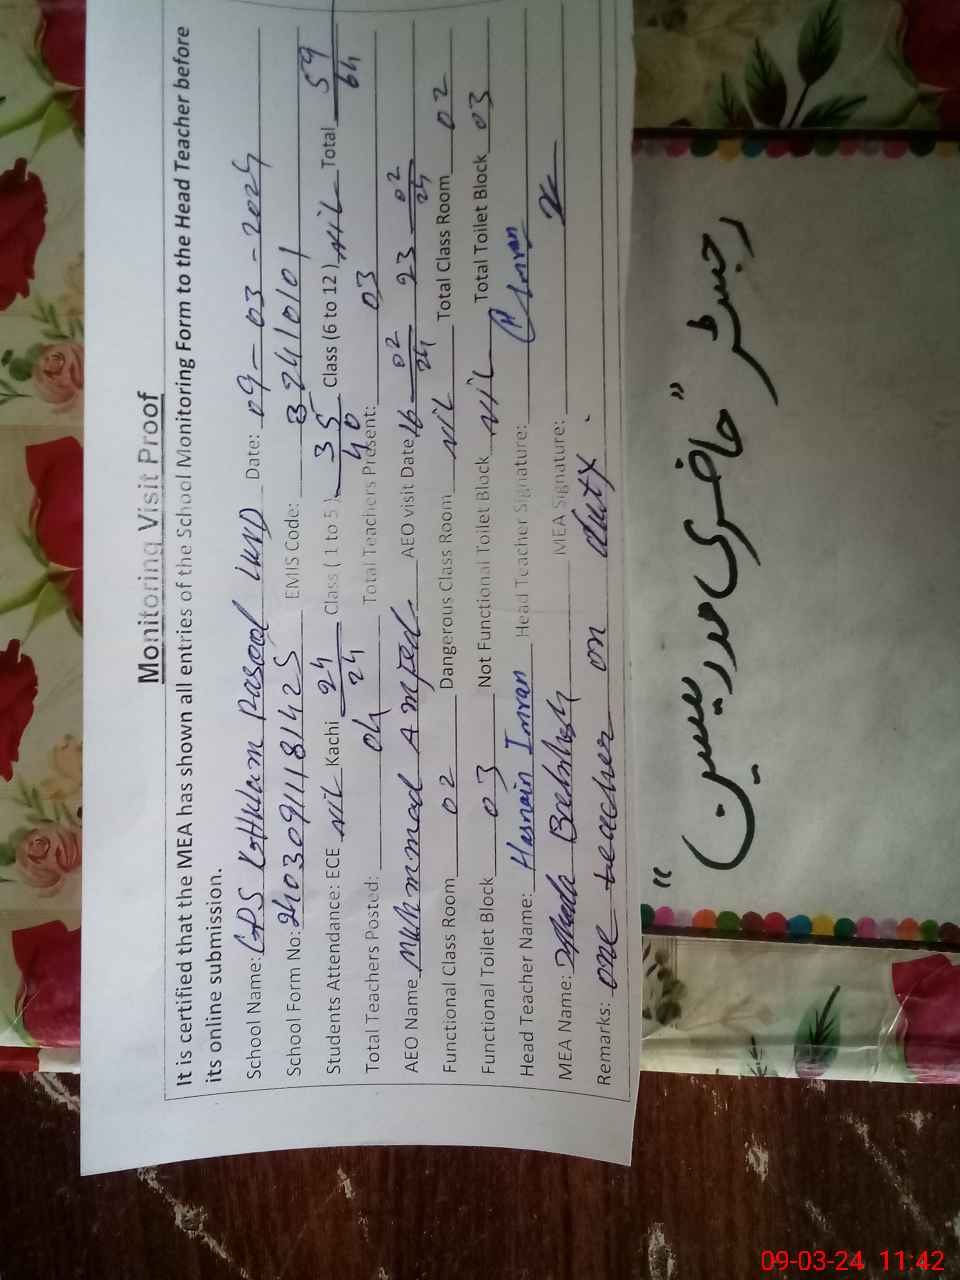 Monitoring Visit Proof
It is certified that the MEA has shown all entries of the School Monitoring Form to the Head Teacher before
its online submission.
School Name: GPS Ghulam Rasool Lund Date: 09-03-2024
School Form No: 240309111181425 EMIS Code: 32410101
Students Attendance: ECE Nil Kachi 24/24 Class (1 to 5) 35/40 Class (6 to 12) Nil Total 59/64
Total Teachers Posted: 04 Total Teachers Present: 03
AEO Name Muhmmad AEO visit Date 16-02/24 23-02/24
Functional Class Room 02 Dangerous Class Room Nil Total Class Room 02
Functional Toilet Block 03 Not Functional Toilet Block Nil Total Toilet Block 03
Head Teacher Name: Hasnain Imran Head Teacher Signature: Imran
MEA Name: Bakhsh MEA Signature:
Remarks: one teacher on duty.
"رجسٹر "حاضری مدرسین
09-03-24 11:42